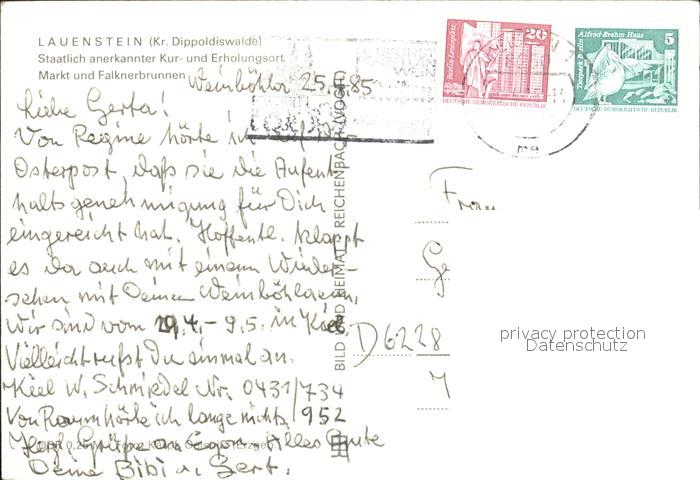 LAUENSTEIN (Kr. Dippoldiswalde)
Staatlich anerkannter Kur- und Erholungsort
Markt und Falknerbrunnen
Weinböhla 25.3.85
Liebe Gerta!
Von Regine hörte ich auf
Osterpost, daß sie die Aufent-
haltsgenehmigung für Dich
eingereicht hat. Hoffentl. klappt
es da auch mit einem Wieder-
sehen mit Deinen Weinböhlaern,
wir sind vom 19.4.-9.5. in Kiel.
Vielleicht rufst Du einmal an.
Kiel W. Schmiedel Nr. 0431/734
952
Von Raum hörte ich lange nichts.
Herzl. Grüße an Egon. Alles Gute
Deine Bibi u. Gert.
BILD UND HEIMAT REICHENBACH (VOGTL)
20
Berlin-Leninplatz
DEUTSCHE DEMOKRATISCHE REPUBLIK
Alfred-Brehm-Haus 5
Tierpark Berlin
DEUTSCHE DEMOKRATISCHE REPUBLIK
WEIN
Frau
Ge
D 6228
privacy protection
Datenschutz